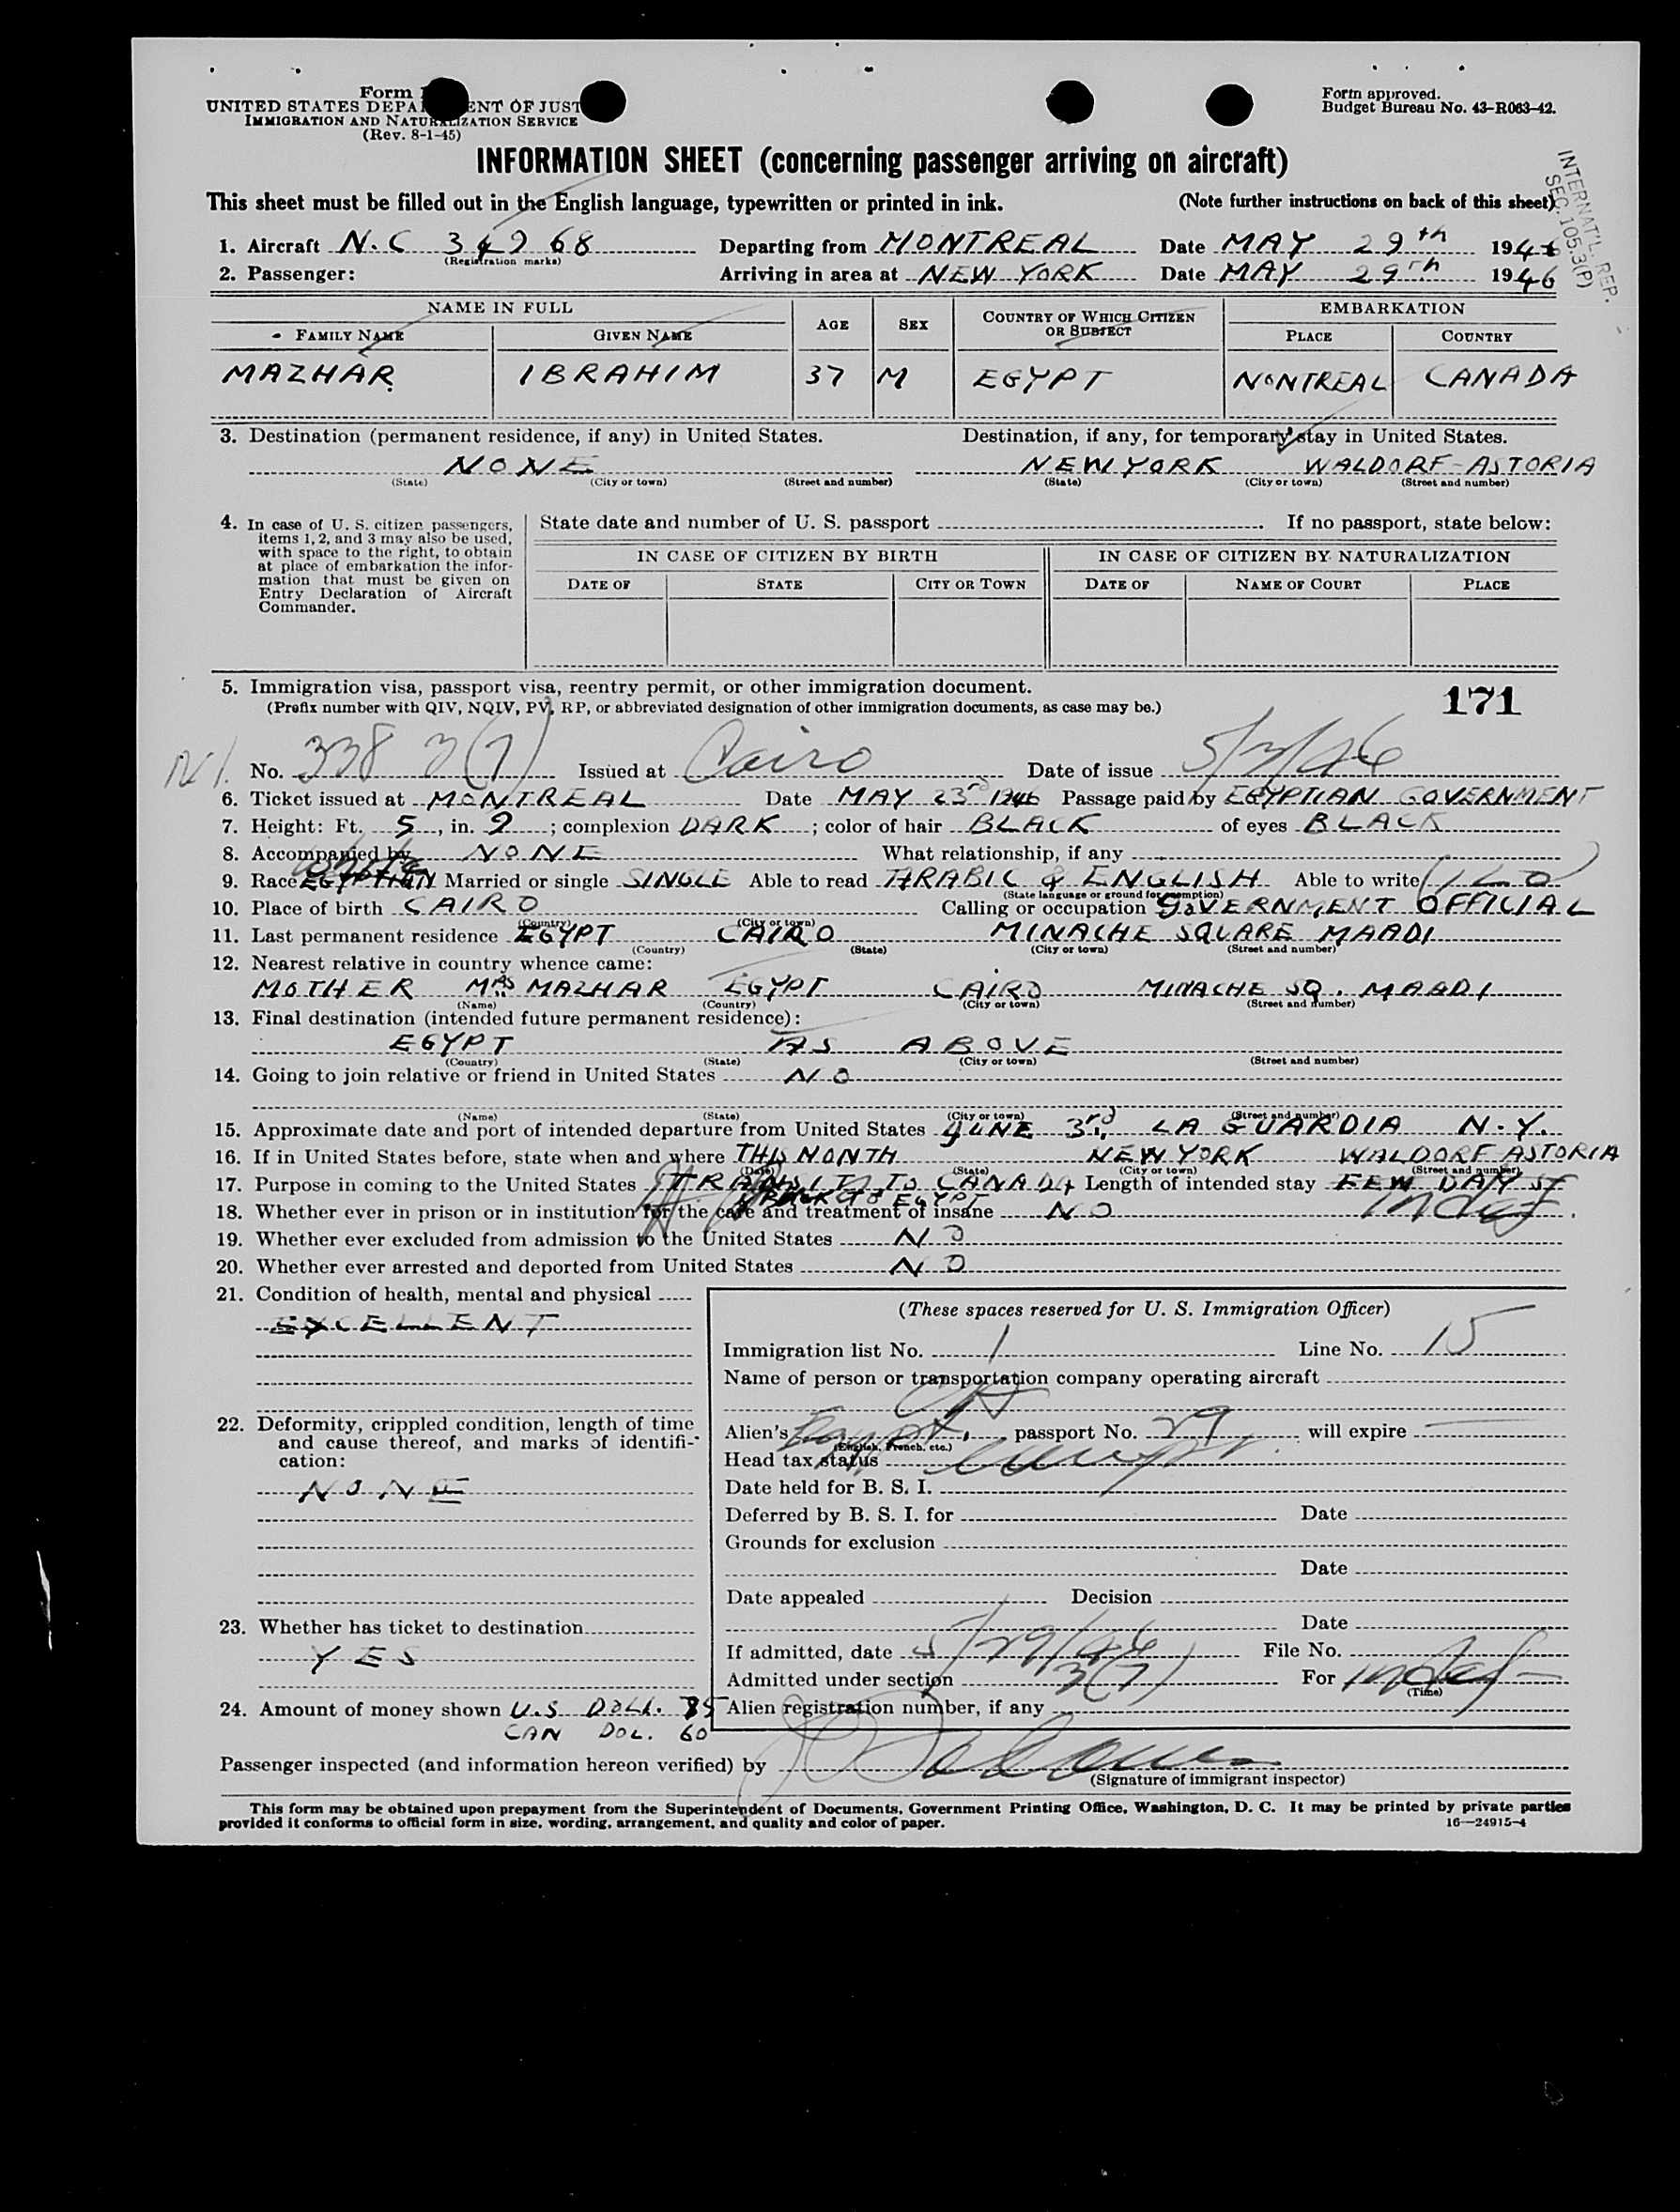 Form
UNITED STATES DEPARTMENT OF JUST
IMMIGRATION AND NATURALIZATION SERVICE
(Rev. 8-1-45)
Form approved.
Budget Bureau No. 43-R063-42.
INTERNAT'L. REP.
SEC. 1053(P)
INFORMATION SHEET (concerning passenger arriving on aircraft)
This sheet must be filled out in the English language, typewritten or printed in ink. (Note further instructions on back of this sheet)
1. Aircraft N.C 34968 Departing from MONTREAL Date MAY 29th 1946
(Registration marks)
2. Passenger: Arriving in area at NEW YORK Date MAY 29th 1946
NAME IN FULL AGE SEX COUNTRY OF WHICH CITIZEN OR SUBJECT EMBARKATION
FAMILY NAME GIVEN NAME PLACE COUNTRY
MAZHAR IBRAHIM 37 M EGYPT MONTREAL CANADA
3. Destination (permanent residence, if any) in United States. Destination, if any, for temporary stay in United States.
NONE NEW YORK WALDORF-ASTORIA
(State) (City or town) (Street and number) (State) (City or town) (Street and number)
4. In case of U. S. citizen passengers,
items 1, 2, and 3 may also be used,
with space to the right, to obtain
at place of embarkation the infor-
mation that must be given on
Entry Declaration of Aircraft
Commander.
State date and number of U. S. passport . If no passport, state below:
IN CASE OF CITIZEN BY BIRTH IN CASE OF CITIZEN BY NATURALIZATION
DATE OF STATE CITY OR TOWN DATE OF NAME OF COURT PLACE
5. Immigration visa, passport visa, reentry permit, or other immigration document.
(Prefix number with QIV, NQIV, PV, RP, or abbreviated designation of other immigration documents, as case may be.)
171
No. 338 3(7) Issued at Cairo Date of issue 5/3/46
6. Ticket issued at MONTREAL Date MAY 23rd 1946 Passage paid by EGYPTIAN GOVERNMENT
7. Height: Ft. 5, in. 9; complexion DARK; color of hair BLACK of eyes BLACK
8. Accompanied by NONE What relationship, if any
white
9. Race EGYPTIAN Married or single SINGLE Able to read ARABIC & ENGLISH Able to write
(State language or ground for exemption)
10. Place of birth CAIRO Calling or occupation GOVERNMENT OFFICIAL
(Country) (City or town)
11. Last permanent residence EGYPT CAIRO MINACHE SQUARE MAADI
(Country) (State) (City or town) (Street and number)
12. Nearest relative in country whence came:
MOTHER MRS MAZHAR EGYPT CAIRO MINACHE SQ. MAADI
(Name) (Country) (City or town) (Street and number)
13. Final destination (intended future permanent residence):
EGYPT AS ABOVE
(Country) (State) (City or town) (Street and number)
14. Going to join relative or friend in United States NO
(Name) (State) (City or town) (Street and number)
15. Approximate date and port of intended departure from United States JUNE 3rd, LA GUARDIA N.Y.
16. If in United States before, state when and where THIS MONTH NEW YORK WALDORF ASTORIA
(Date) (State) (City or town) (Street and number)
17. Purpose in coming to the United States TRANSIT TO CANADA Length of intended stay FEW DAYS
BACK TO EGYPT
18. Whether ever in prison or in institution for the care and treatment of insane NO Indef.
19. Whether ever excluded from admission to the United States NO
20. Whether ever arrested and deported from United States NO
21. Condition of health, mental and physical
EXCELLENT
22. Deformity, crippled condition, length of time
and cause thereof, and marks of identifi-
cation:
NONE
23. Whether has ticket to destination
YES
24. Amount of money shown U.S. DOLL. 75
CAN DOL. 60
(These spaces reserved for U. S. Immigration Officer)
Immigration list No. 1 Line No. 15
Name of person or transportation company operating aircraft
Alien's Egypt. passport No. 29 will expire —
(English, French, etc.)
Head tax status
Date held for B. S. I.
Deferred by B. S. I. for Date
Grounds for exclusion
Date
Date appealed Decision
Date
If admitted, date 5/29/46 File No.
Admitted under section 3(7) For Indef
(Time)
Alien registration number, if any
Passenger inspected (and information hereon verified) by
(Signature of immigrant inspector)
This form may be obtained upon prepayment from the Superintendent of Documents, Government Printing Office, Washington, D. C. It may be printed by private parties
provided it conforms to official form in size, wording, arrangement, and quality and color of paper.
16—24915-4